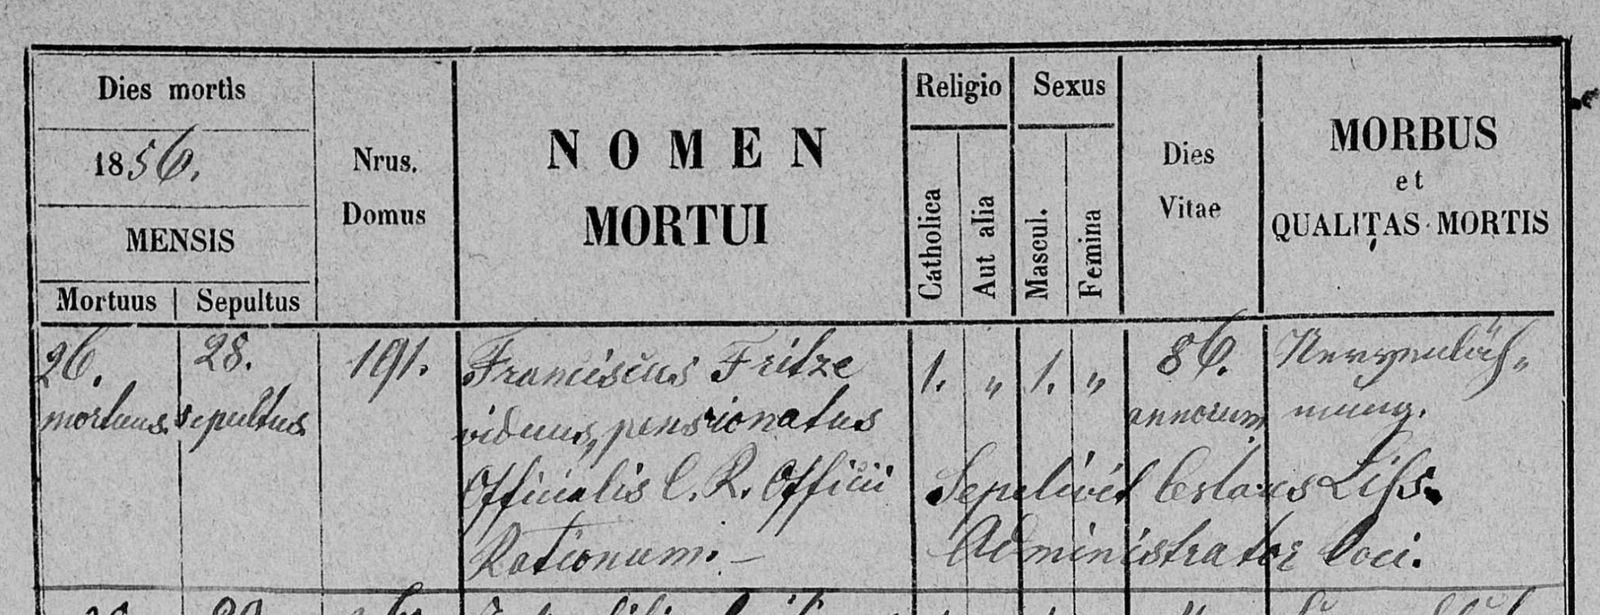 Dies mortis
1856.
MENSIS
Mortuus Sepultus
Nrus.
Domus
NOMEN
MORTUI
Religio
Catholica
Aut alia
Sexus
Mascul.
Femina
Dies
Vitae
MORBUS
et
QUALITAS MORTIS
26. 28. 191. Franciscus Fritze 1. " 1. " 86. Nervenläh„
mortuus sepultus viduus, pensionatus annorum mung.
Officialis C. R. Officii Sepelivit Ceslaus Liss.
Rationum. — Administrator loci.